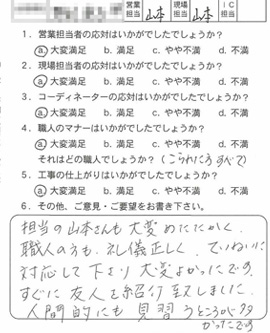 営業担当 山本 現場担当 山本 IC担当
1. 営業担当者の応対はいかがでしたでしょうか?
ⓐ 大変満足 b. 満足 c. やや不満 d. 不満
2. 現場担当者の応対はいかがでしたでしょうか?
ⓐ 大変満足 b. 満足 c. やや不満 d. 不満
3. コーディネーターの応対はいかがでしたでしょうか?
ⓐ 大変満足 b. 満足 c. やや不満 d. 不満
4. 職人のマナーはいかがでしたでしょうか?
ⓐ 大変満足 b. 満足 c. やや不満 d. 不満
それはどの職人でしょうか?( すべて)
5. 工事の仕上がりはいかがでしたでしょうか?
ⓐ 大変満足 b. 満足 c. やや不満 d. 不満
6. その他、ご意見・ご要望をお書き下さい。
担当の山本さんも大変
職人の方も、礼儀正しく、ていねいに
対応して下さり大変よかったです。
すぐに友人を紹介致しました。
人間的にも見習うところが
かったです